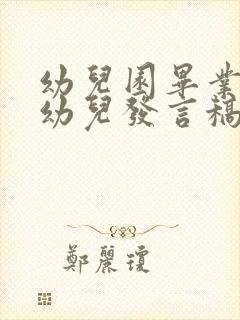 幼兒園畢業
幼兒發言稿
鄭麗瓊